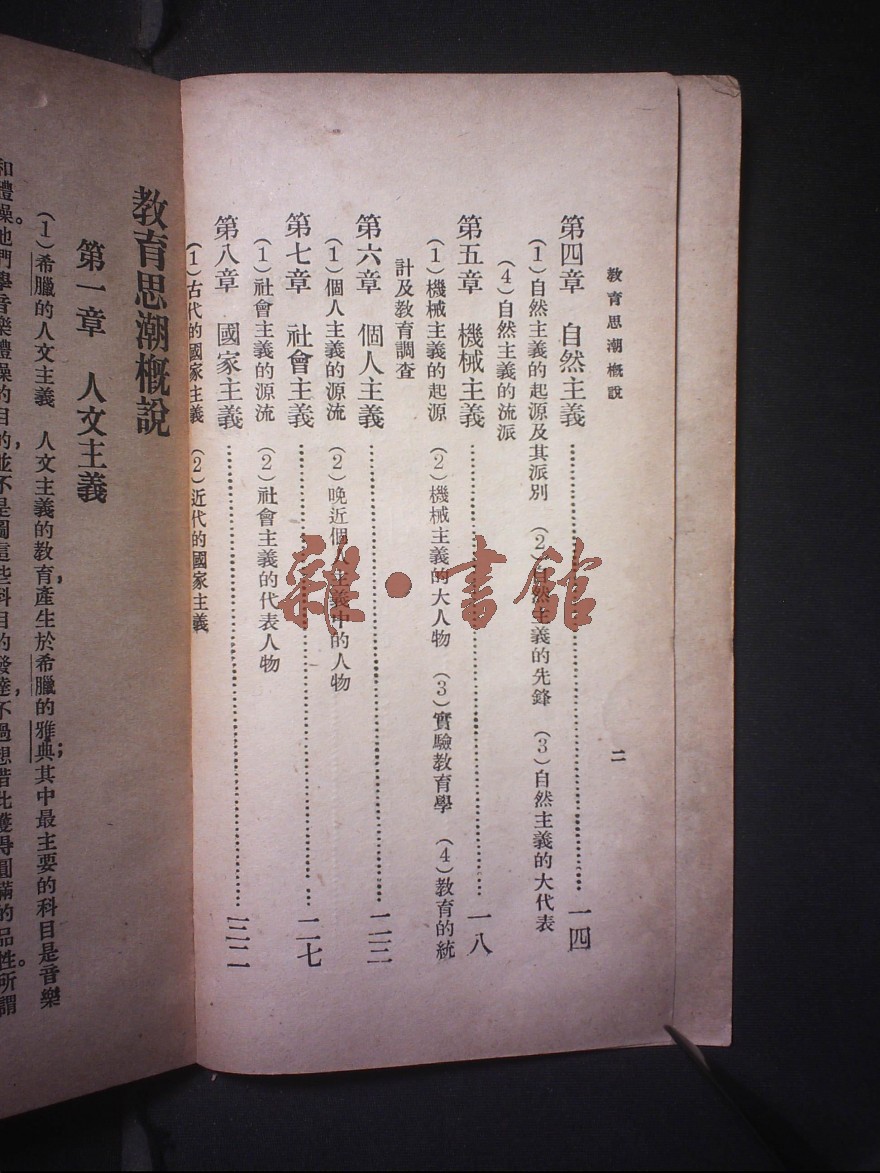 教育思潮概說
二
第四章 自然主義……一四
(1)自然主義的起源及其派別 (2)自然主義的先鋒 (3)自然主義的大代表
(4)自然主義的流派
第五章 機械主義……一八
(1)機械主義的起源 (2)機械主義的大人物 (3)實驗教育學 (4)教育的統
計及教育調查
第六章 個人主義……二三
(1)個人主義的源流 (2)晚近個人主義中的人物
第七章 社會主義……二七
(1)社會主義的源流 (2)社會主義的代表人物
第八章 國家主義……三二
(1)古代的國家主義 (2)近代的國家主義
雜·書館
教育思潮概說
第一章 人文主義
(1)希臘的人文主義 人文主義的教育,產生於希臘的雅典;其中最主要的科目是音樂
和體操。他們學音樂體操的目的,並不是圖這些科目的發達,不過想借此獲得圓滿的品性。所謂